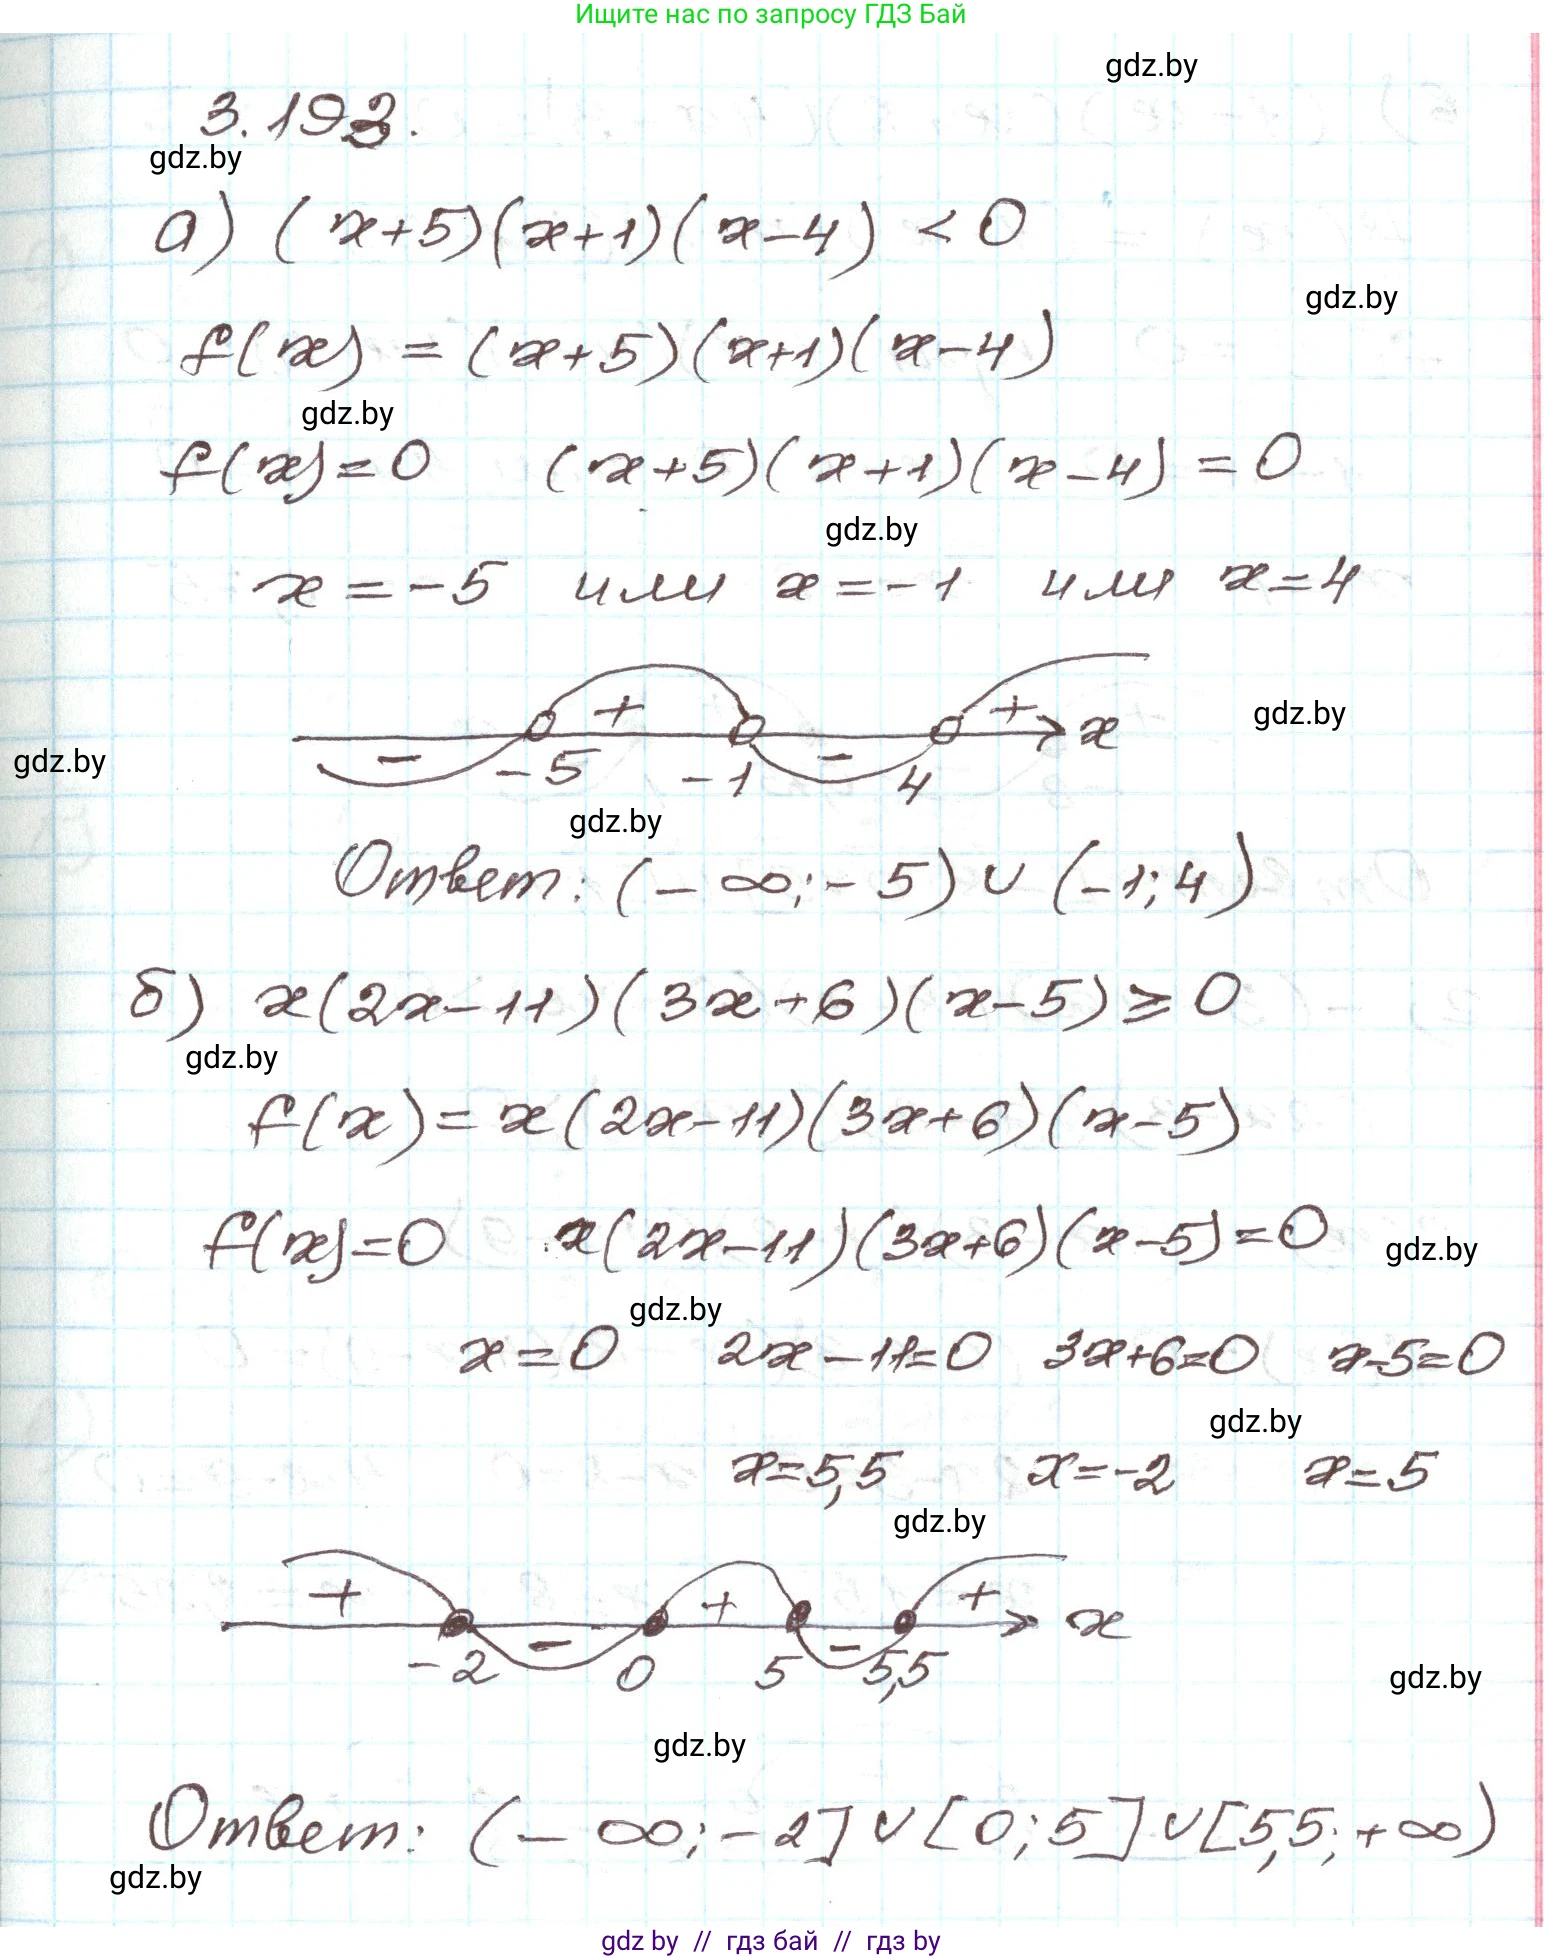 Ищите нас по запросу ГДЗ Бай
gdz.by
3.193.
gdz.by
а) (x+5)(x+1)(x-4) < 0
gdz.by
f(x) = (x+5)(x+1)(x-4)
gdz.by
f(x)=0 (x+5)(x+1)(x-4) = 0
gdz.by
x = -5 или x = -1 или x = 4
- + - + x
gdz.by
gdz.by
-5 -1 4
gdz.by
Ответ: (-∞; -5) ∪ (-1; 4)
б) x(2x-11)(3x+6)(x-5) ≥ 0
gdz.by
f(x) = x(2x-11)(3x+6)(x-5)
f(x)=0 x(2x-11)(3x+6)(x-5)=0
gdz.by
gdz.by
x=0 2x-11=0 3x+6=0 x-5=0
gdz.by
x=5,5 x=-2 x=5
gdz.by
+ - + - + x
-2 0 5 5,5
gdz.by
gdz.by
Ответ: (-∞; -2] ∪ [0; 5] ∪ [5,5; +∞)
gdz.by
gdz by // гдз бай // гдз by